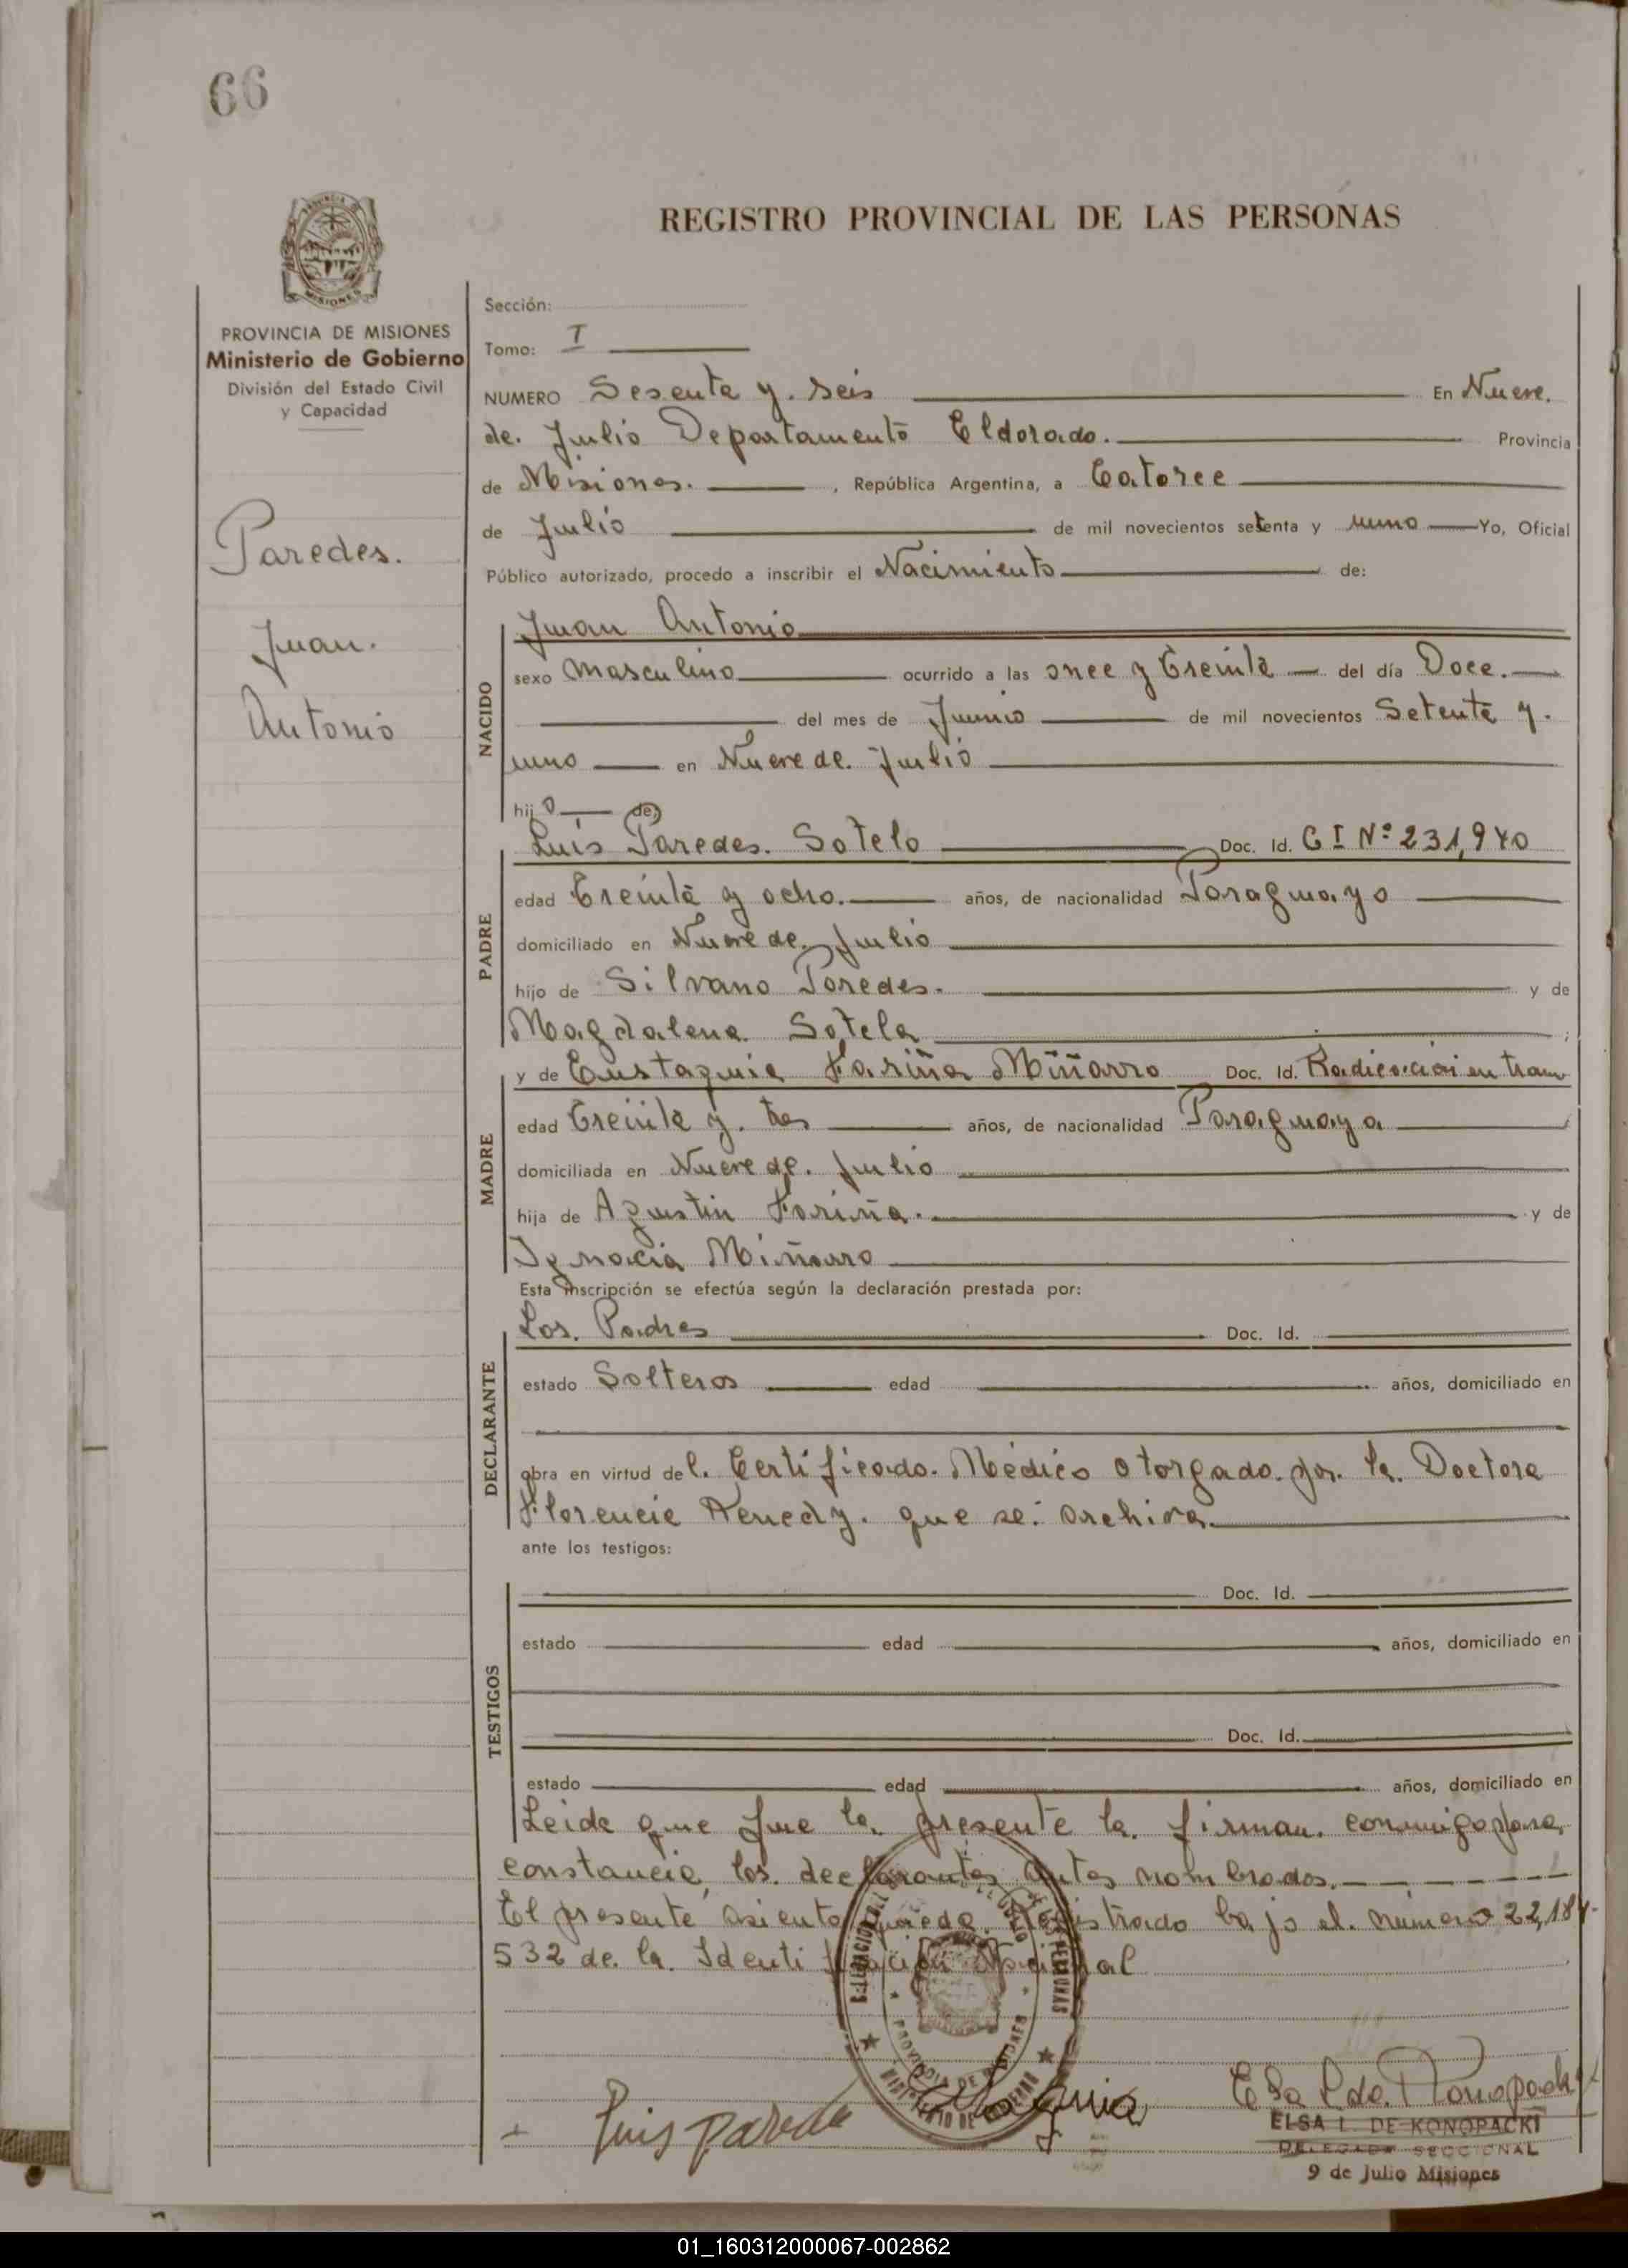 66
REGISTRO PROVINCIAL DE LAS PERSONAS
MISIONES
PROVINCIA DE MISIONES
Ministerio de Gobierno
División del Estado Civil
y Capacidad
Paredes.
Juan.
Antonio
Sección:
Tomo: I
NUMERO Sesenta y. seis En Nueve.
de. Julio Departamento Eldorado. Provincia
de Misiones. , República Argentina, a Catorce
de Julio de mil novecientos setenta y uno Yo, Oficial
Público autorizado, procedo a inscribir el Nacimiento de:
NACIDO
Juan Antonio
sexo masculino ocurrido a las once y treinta del día Doce.
del mes de Junio de mil novecientos Setenta y.
uno en Nueve de. Julio
hijo de
PADRE
Luis Paredes. Sotelo Doc. Id. C I Nº 231,940
edad treinta y ocho. años, de nacionalidad Paraguayo
domiciliado en Nueve de. Julio
hijo de Silvano Paredes. y de
Magdalena Sotela ;
MADRE
y de Eustaquia Fariña Miñarro Doc. Id. Radicación en tram
edad treinta y. tres años, de nacionalidad Paraguaya
domiciliada en Nueve de. Julio
hija de Agustin Fariña. y de
Ignacia Miñarro
Esta inscripción se efectúa según la declaración prestada por:
DECLARANTE
Los. Padres Doc. Id.
estado Solteros edad años, domiciliado en
obra en virtud del. Certificado. Médico otorgado. por. la. Doctora
Florencia Kenedy. que se. archiva.
ante los testigos:
TESTIGOS
Doc. Id.
estado edad años, domiciliado en
Doc. Id.
estado edad años, domiciliado en
Leida que fue la. presente la. firman. conmigo para
constancia, los. declarantes antes nombrados.
El presente asiento queda. registrado bajo el. numero 22,184.
532 de. la. Identificación
Luis Parede
Elsa L de. Konopacki
ELSA L. DE KONOPACKI
DELEGADA SECCIONAL
9 de Julio Misiones
01_160312000067-002862